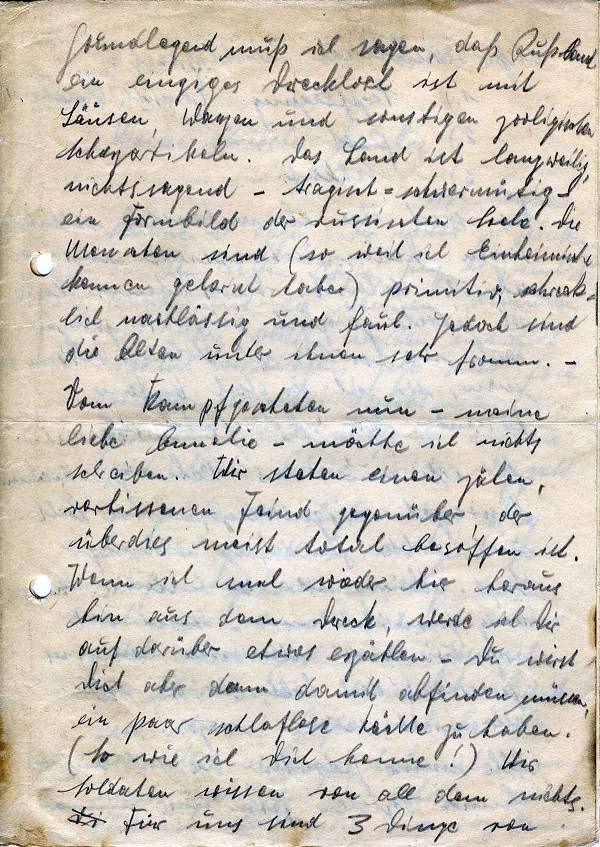 Grundlegend muß ich sagen, daß Rußland
ein einziges Drecksloch ist mit
Läusen, Wanzen und sonstigen zoologischen
Schazartikeln. Das Land ist langweilig,
nichtssagend – tragisch=schwermütig –
ein Formbild der russischen Seele. Die
Menschen sind (so weit ich Einheimische
kennen gelernt habe) primitiv, schreck=
lich nachlässig und faul. Jedoch sind
die Alten unter ihnen sehr fromm. –
Vom Kampfgeschehen nun – meine
liebe Annelie – möchte ich nichts
schreiben. Wir stehen einem zähen,
verbissenen Feind gegenüber, der
überdies meist total besoffen ist.
Wenn ich mal wieder hier heraus
bin aus dem Dreck, werde ich Dir
auch darüber etwas erzählen – Du wirst
Dich aber dann damit abfinden müssen,
ein paar schlaflose Nächte zu haben.
(So wie ich Dich kenne!) Wir
Soldaten wissen von all dem nichts.
Für uns sind 3 Dinge von